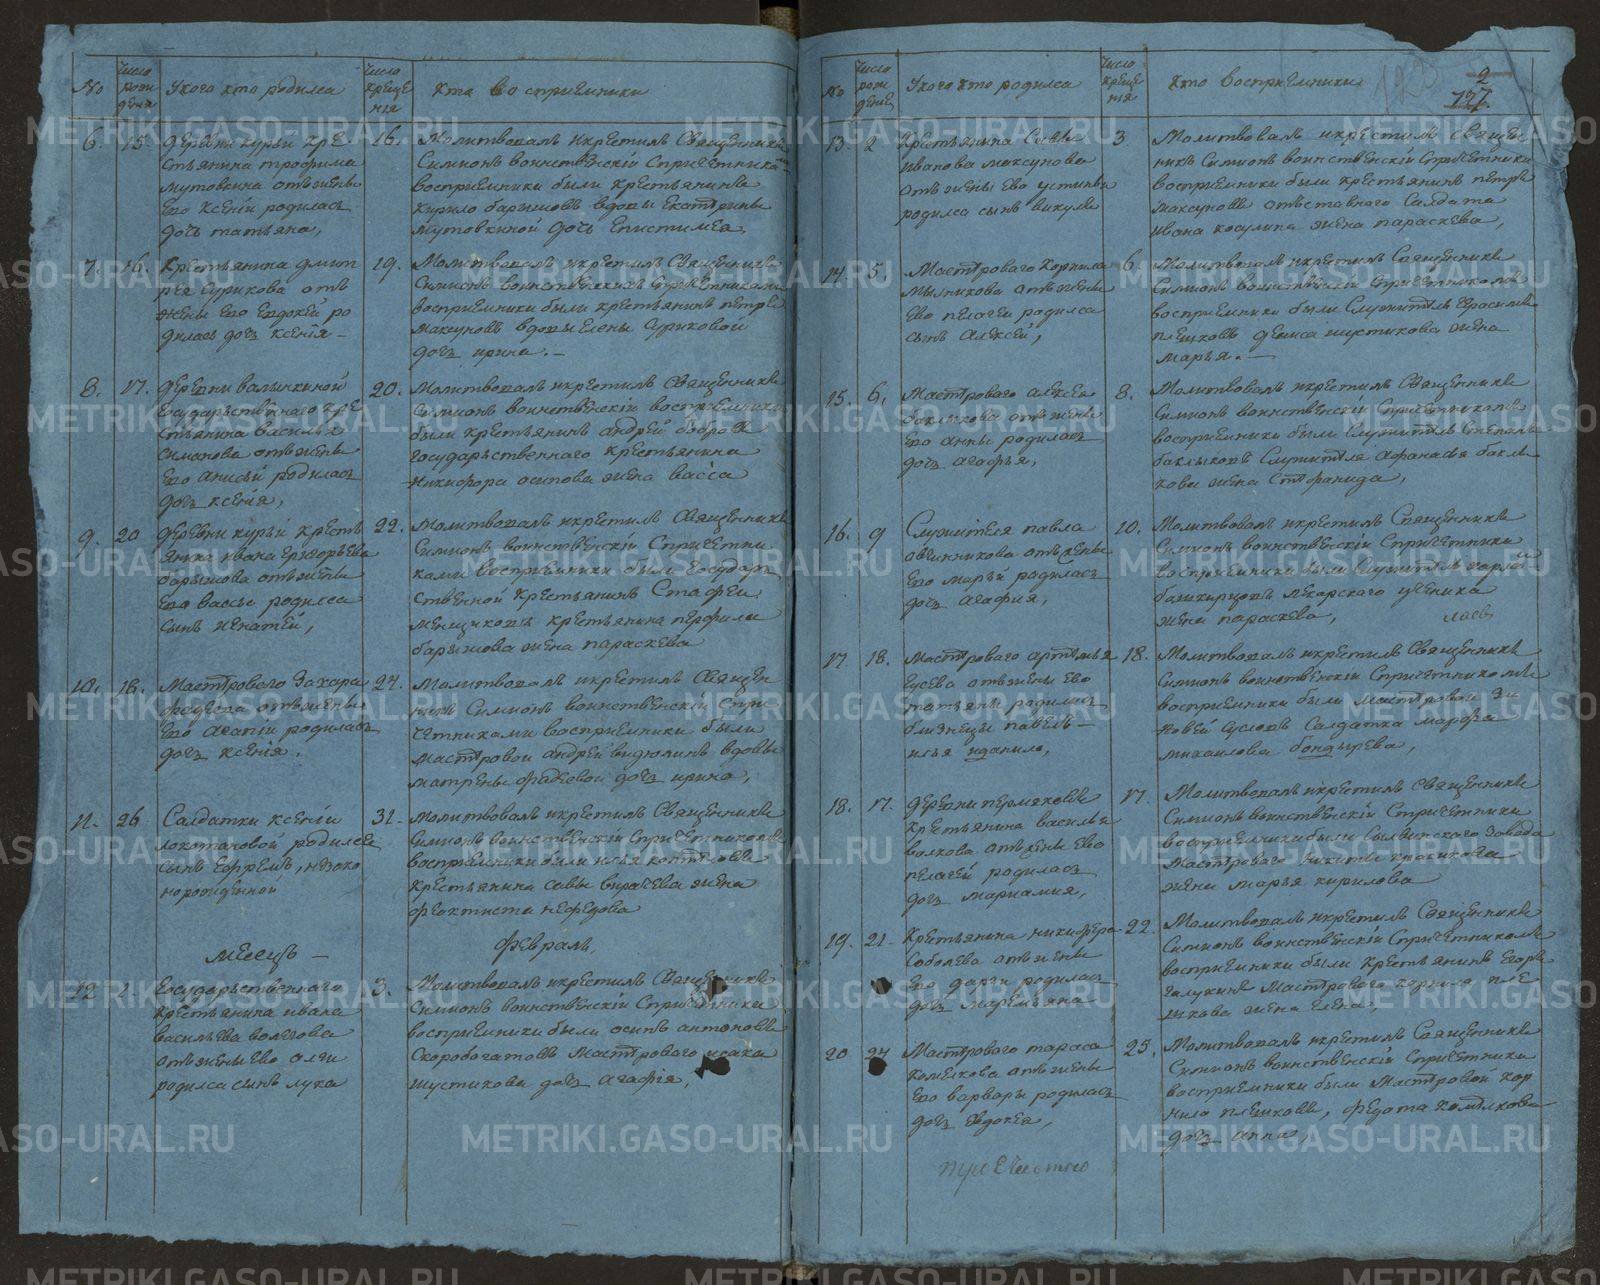 No
Число рож дения
У кого кто родился
Число креще нія
Кто восприемники
6.
15
деревни курьи кре
стьянина трофима
мутовкина отъ жены
Его Ксеніи родилась
дочь татьяна,
16.
Молитвовалъ и крестилъ Священникъ
Симионъ воинственскій Спричетника
восприемники были крестьянинъ
кирило барышовъ вдовы Екатерины
мутовкиной дочь Епистимея,
7.
16.
Крестьянина дмит
рея Сурикова отъ
жены Его Евдокеи ро
дилась дочь ксенія
19.
Молитвовалъ и крестилъ Священникъ
Симионъ воинственскій Спричетниками
восприемники были крестьянинъ петръ
максуновъ вдовы Елены Суриковой
дочь ирина.
8.
17.
деревни валычкиной
государственнаго кре
стьянина василья
симанова отъ жены
Его анисьи родилась
дочь ксенія,
20.
Молитвовалъ и крестилъ Священникъ
Симионъ воинственскій восприемники
были крестьянинъ андрей бобровъ
государственнаго крестьянина
Никифора осипова жена васса
9.
20
деревни курьи кресть
янина ивана григорьева
барышова отъ жены
Его вассы родился
сынъ игнатей,
22.
Молитвовалъ и крестилъ Священникъ
Симионъ воинственскій Спричетни
ками восприемники были государ
ственной крестьянинъ Стафеи
менщиковъ крестьянина перфила
барышова жена параскева
10.
18.
Мастероваго Захара
фадеева отъ жены
Его агапіи родилась
дочь ксенія.
24.
Молитвовалъ и крестилъ Священ
никъ Симионъ воинственскій Спри
четниками восприемники были
мастеровой андрей видюлинъ вдовы
матрены фадеевой дочь ирина,
11.
26
Салдатки ксеніи
локотановой родился
сынъ Ефремъ, незако
норожденной
31.
Молитвовалъ и крестилъ Священникъ
Симионъ воинственскій Спричетникомъ
восприемники были илья коптеловъ
крестьянина савы вирачева жена
феоктиста нефедова
месецъ
февраль,
12
1.
Государственнаго
крестьянина ивана
васильева волегова
отъ жены Ево олги
родился сынъ лука
3.
Молитвовалъ и крестилъ Священникъ
Симионъ воинственскій Спричетники
восприемники были осипъ антоновъ
Скоробогатовъ мастероваго исака
шустикова дочь агафія,
123
2
177.
No
Число рож дение
У кого кто родился
Число креще нія
Кто восприемники
13.
2
Крестьянина Савы
иванова максунова
отъ жены Ево устиньи
родился сынъ викулъ
3.
Молитвовалъ и крестилъ священ
никъ Симионъ воинственскій Спричетники
восприемники были крестьянинъ петръ
максуновъ отставнаго Салдата
ивана косулина жена параскева,
14.
5.
Мастероваго корнила
мылникова отъ жены
Ево пелагеи родился
сынъ алексей,
6
Молитвовалъ и крестилъ Священникъ
Симионъ воинственскій Спричетникомъ
восприемники были Служитель герасимъ
плешковъ дениса шустикова жена
марья.
15.
6.
Мастероваго алексея
баклыкова отъ жены
Его анны родилась
дочь агафья,
8.
Молитвовалъ и крестилъ Священникъ
Симионъ воинственскій Спричетникомъ
восприемники были Служитель Степанъ
баклыковъ Служителя афанасья баклы
кова жена Стефанида,
16.
9
Служителя павла
овчинникова отъ жены
Его марьи родилась
дочь агафия,
10.
Молитвовалъ и крестилъ Священникъ
Симионъ воинственскій Спричетники
восприемники были Служитель карло
башкирцовъ лекарскаго ученика
жена параскева,
17.
18.
Мастероваго артемья
гусева отъ жены Ево
татьяны родились
близнецы павелъ
илья и данило,
18.
Молитвовалъ и крестилъ Священникъ
Симионъ воинственскій Спричетникомъ
восприемники были мастеровой Зи
новей сусловъ Салдатка марфа
михаилова бондырева,
18.
17.
деревни пермяковы
крестьянина василья
волкова отъ жены Ево
пелагеи родилась
дочь мариамия,
17.
Молитвовалъ и крестилъ Священникъ
Симионъ воинственскій Спричетники
восприемники были Сылвинскаго завода
мастероваго никиты красикова
жена марья кирилова
19.
21
Крестьянина никифора
Соболева отъ жены
Его дарьи родилась
дочь маремьяна
22.
Молитвовалъ и крестилъ Священникъ
Симионъ воинственскій Спричетникомъ
восприемники были крестьянинъ Егоръ
галухинъ мастероваго корнила пле
шкова жена Елена,
20
24
Мастероваго тараса
комелкова отъ жены
Его варвары родилась
дочь евдокея,
25.
Молитвовалъ и крестилъ Священникъ
Симионъ воинственскій Спричетники
восприемники были мастеровой кор
нило плешковъ, федота комелкова
дочь анна,
METRIKI.GASO-URAL.RU